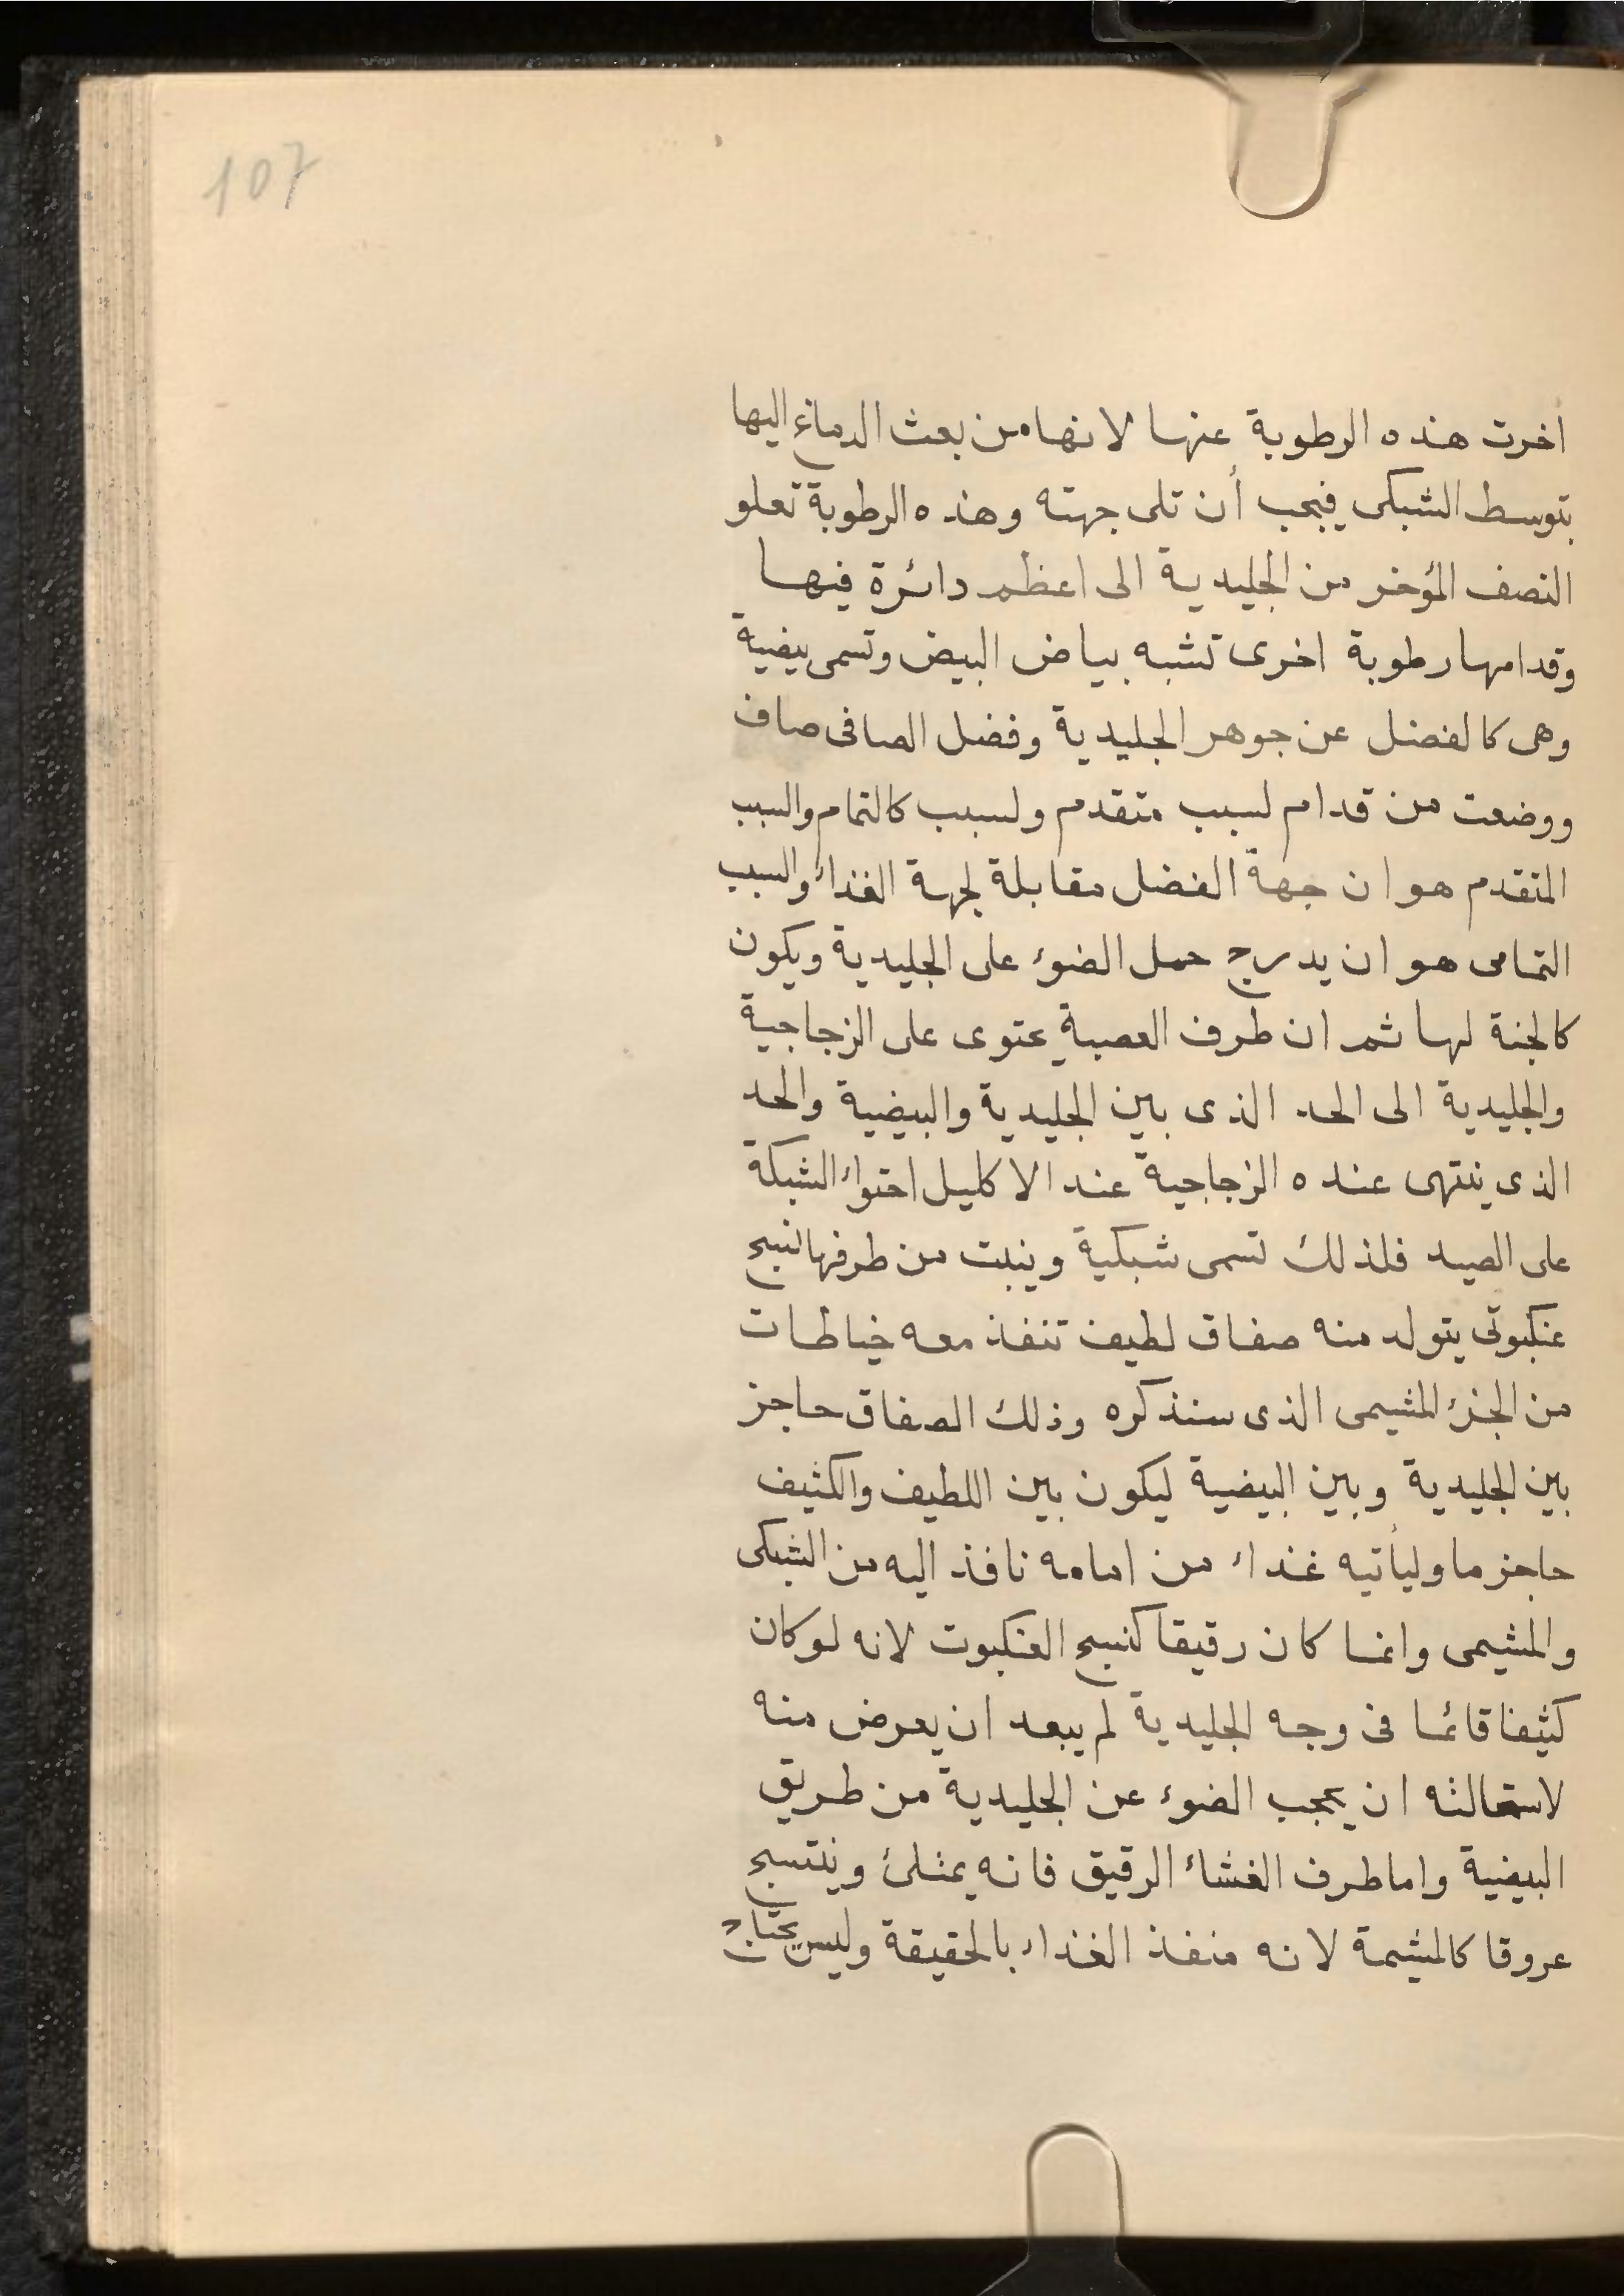 107
اخرت هذه الرطوبة عنها لانها من بعث الدماغ اليها
بتوسط الشبكى فيجب أن تلى جهته وهذه الرطوبة تعلو
النصف المؤخر من الجليدية الى اعظم دائرة فيها
وقدامها رطوبة اخرى تشبه بياض البيض وتسمى بيضية
وهى كالفضل عن جوهر الجليدية وفضل الصافى صاف
ووضعت من قدام لسبب متقدم ولسبب كالتمام والسبب
المتقدم هو ان جهة الفضل مقابلة لجهة الغذاء والسبب
التمامى هو ان يدرج حمل الضوء على الجليدية ويكون
كالجنة لها ثم ان طرف العصبة يحتوى على الزجاجية
والجليدية الى الحد الذى بين الجليدية والبيضية والحد
الذى ينتهى عنده الزجاجية عند الاكليل احتواء الشبكة
على الصيد فلذلك تسمى شبكية وينبت من طرفها نسج
عنكبوتى يتولد منه صفاق لطيف تنفذ معه خياطات
من الجزء المشيمى الذى سنذكره وذلك الصفاق حاجز
بين الجليدية وبين البيضية ليكون بين اللطيف والكثيف
حاجز ما وليأتيه غذاء من امامه نافذ اليه من الشبكى
والمشيمى وانما كان رقيقا كنسج العنكبوت لانه لو كان
كثيفا قائما فى وجه الجليدية لم يبعد ان يعرض منه
لاستحالثه ان يحجب الضوء عن الجليدية من طريق
البيضية واما طرف الغشاء الرقيق فانه يمثلئ وينتسج
عروقا كالمشيمة لانه منفذ الغذاء بالحقيقة وليس يحتاج